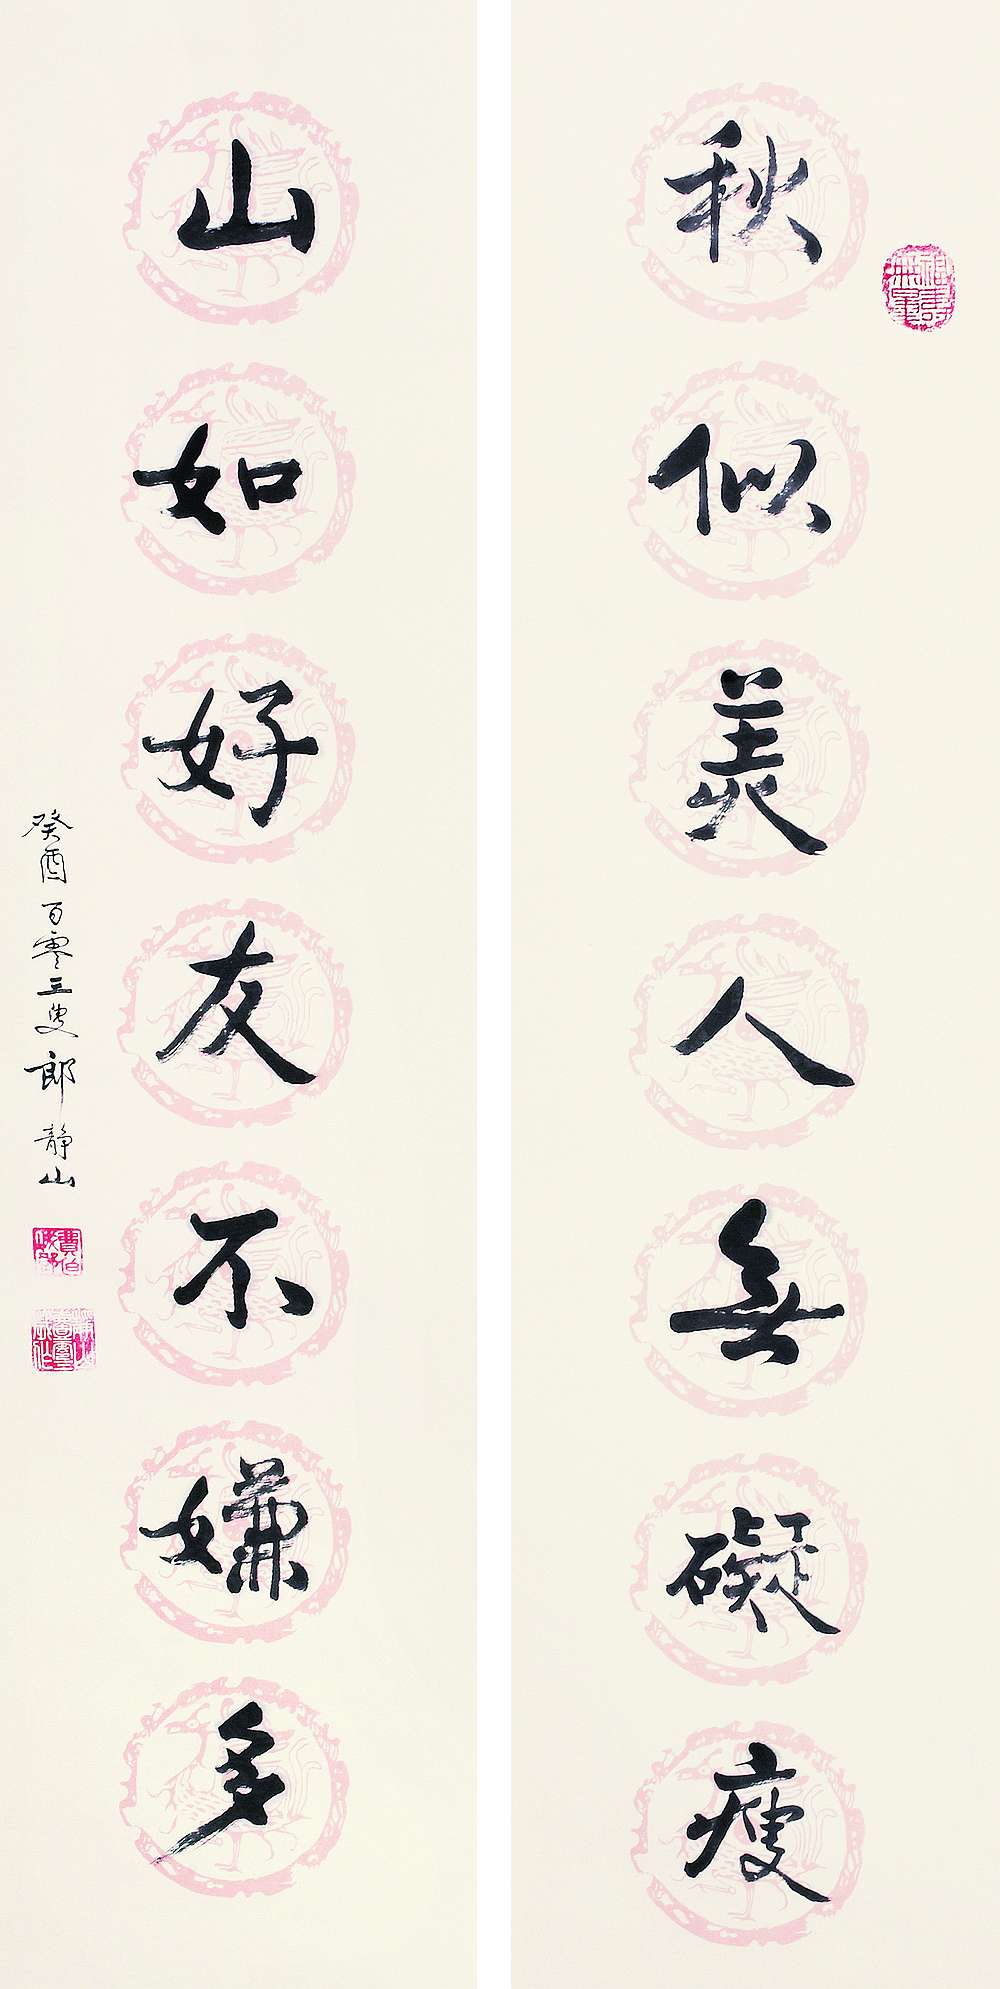 秋似美人無礙瘦
山如好友不嫌多
癸酉百零三叟郎靜山